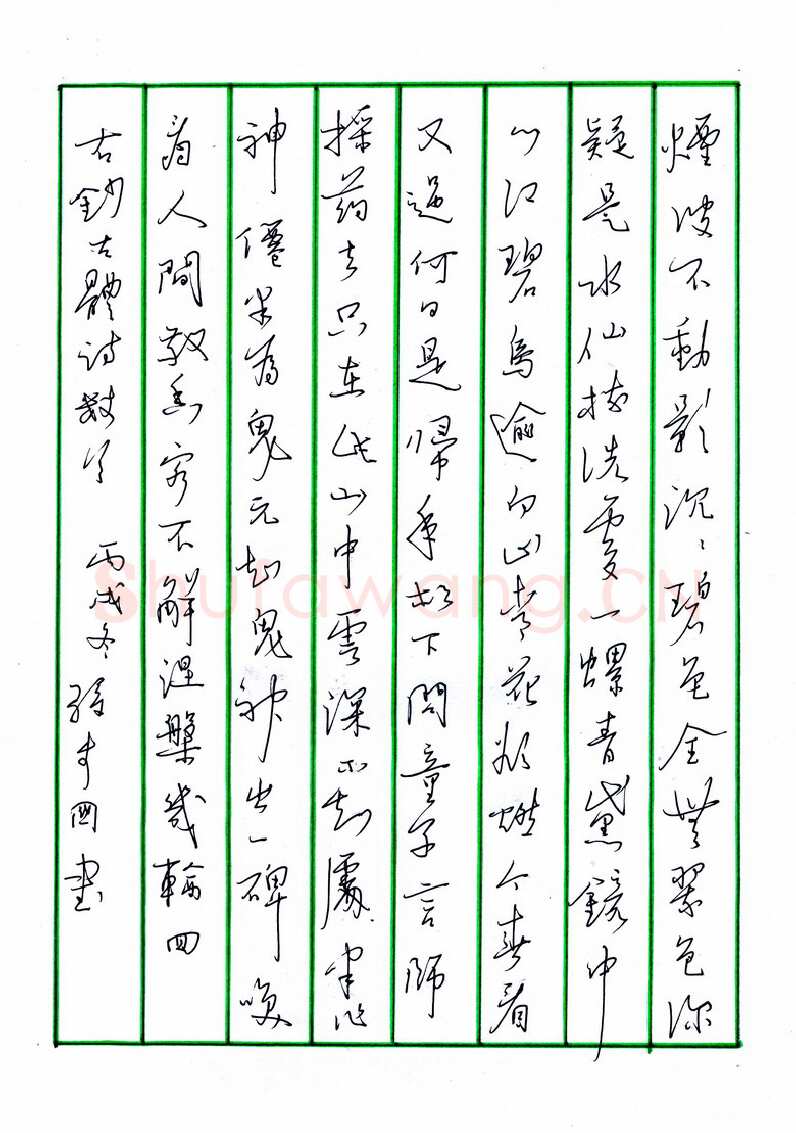 煙波不動影沉〻碧色全無翠色深
疑是水仙梳洗處一螺青黛鏡中
心江碧鳥逾白山青花欲燃今春看
又過何日是歸年松下問童子言師
採药去只在此山中雲深不知處半作
神僊半为鬼元知鬼神出一碑喚
为人間敬香客不解涅槃幾輪回
右鈔古體詩數首 丙戌冬 國書
Shufawang.CN